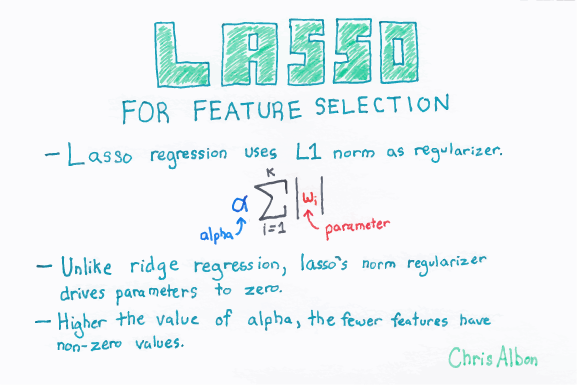 LASSO
FOR FEATURE SELECTION
- Lasso regression uses L1 norm as regularizer.
K
α ∑ |wᵢ|
i=1
alpha
parameter
- Unlike ridge regression, lasso's norm regularizer
drives parameters to zero.
- Higher the value of alpha, the fewer features have
non-zero values.
Chris Albon